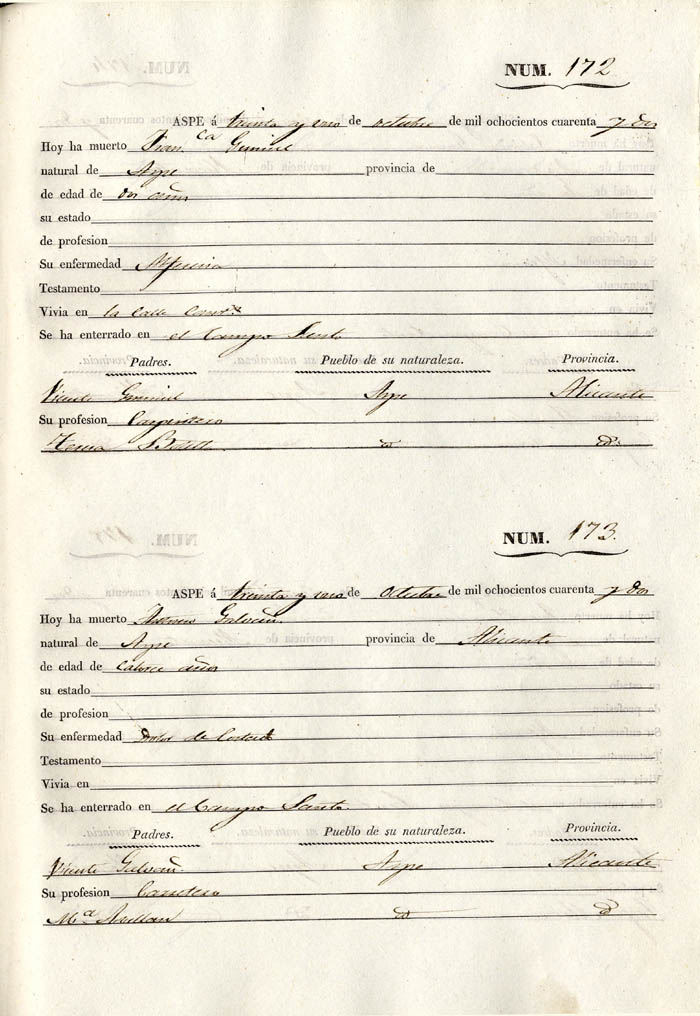 NUM. 172
ASPE á treinta y uno de octubre de mil ochocientos cuarenta y dos
Hoy ha muerto Fran.ca
natural de Aspe provincia de
de edad de dos años
su estado
de profesion
Su enfermedad
Testamento
Vivia en la calle
Se ha enterrado en el Campo Santo
Padres. Pueblo de su naturaleza. Provincia.
Vicente Aspe Alicante
Su profesion Carpintero
NUM. 173.
ASPE á treinta y uno de Octubre de mil ochocientos cuarenta y dos
Hoy ha muerto Antonio Galvañ
natural de Aspe provincia de Alicante
de edad de catorce años
su estado
de profesion
Su enfermedad Dolor de Costado
Testamento
Vivia en
Se ha enterrado en el Campo Santo
Padres. Pueblo de su naturaleza. Provincia.
Vicente Galvañ Aspe Alicante
Su profesion
M.ª